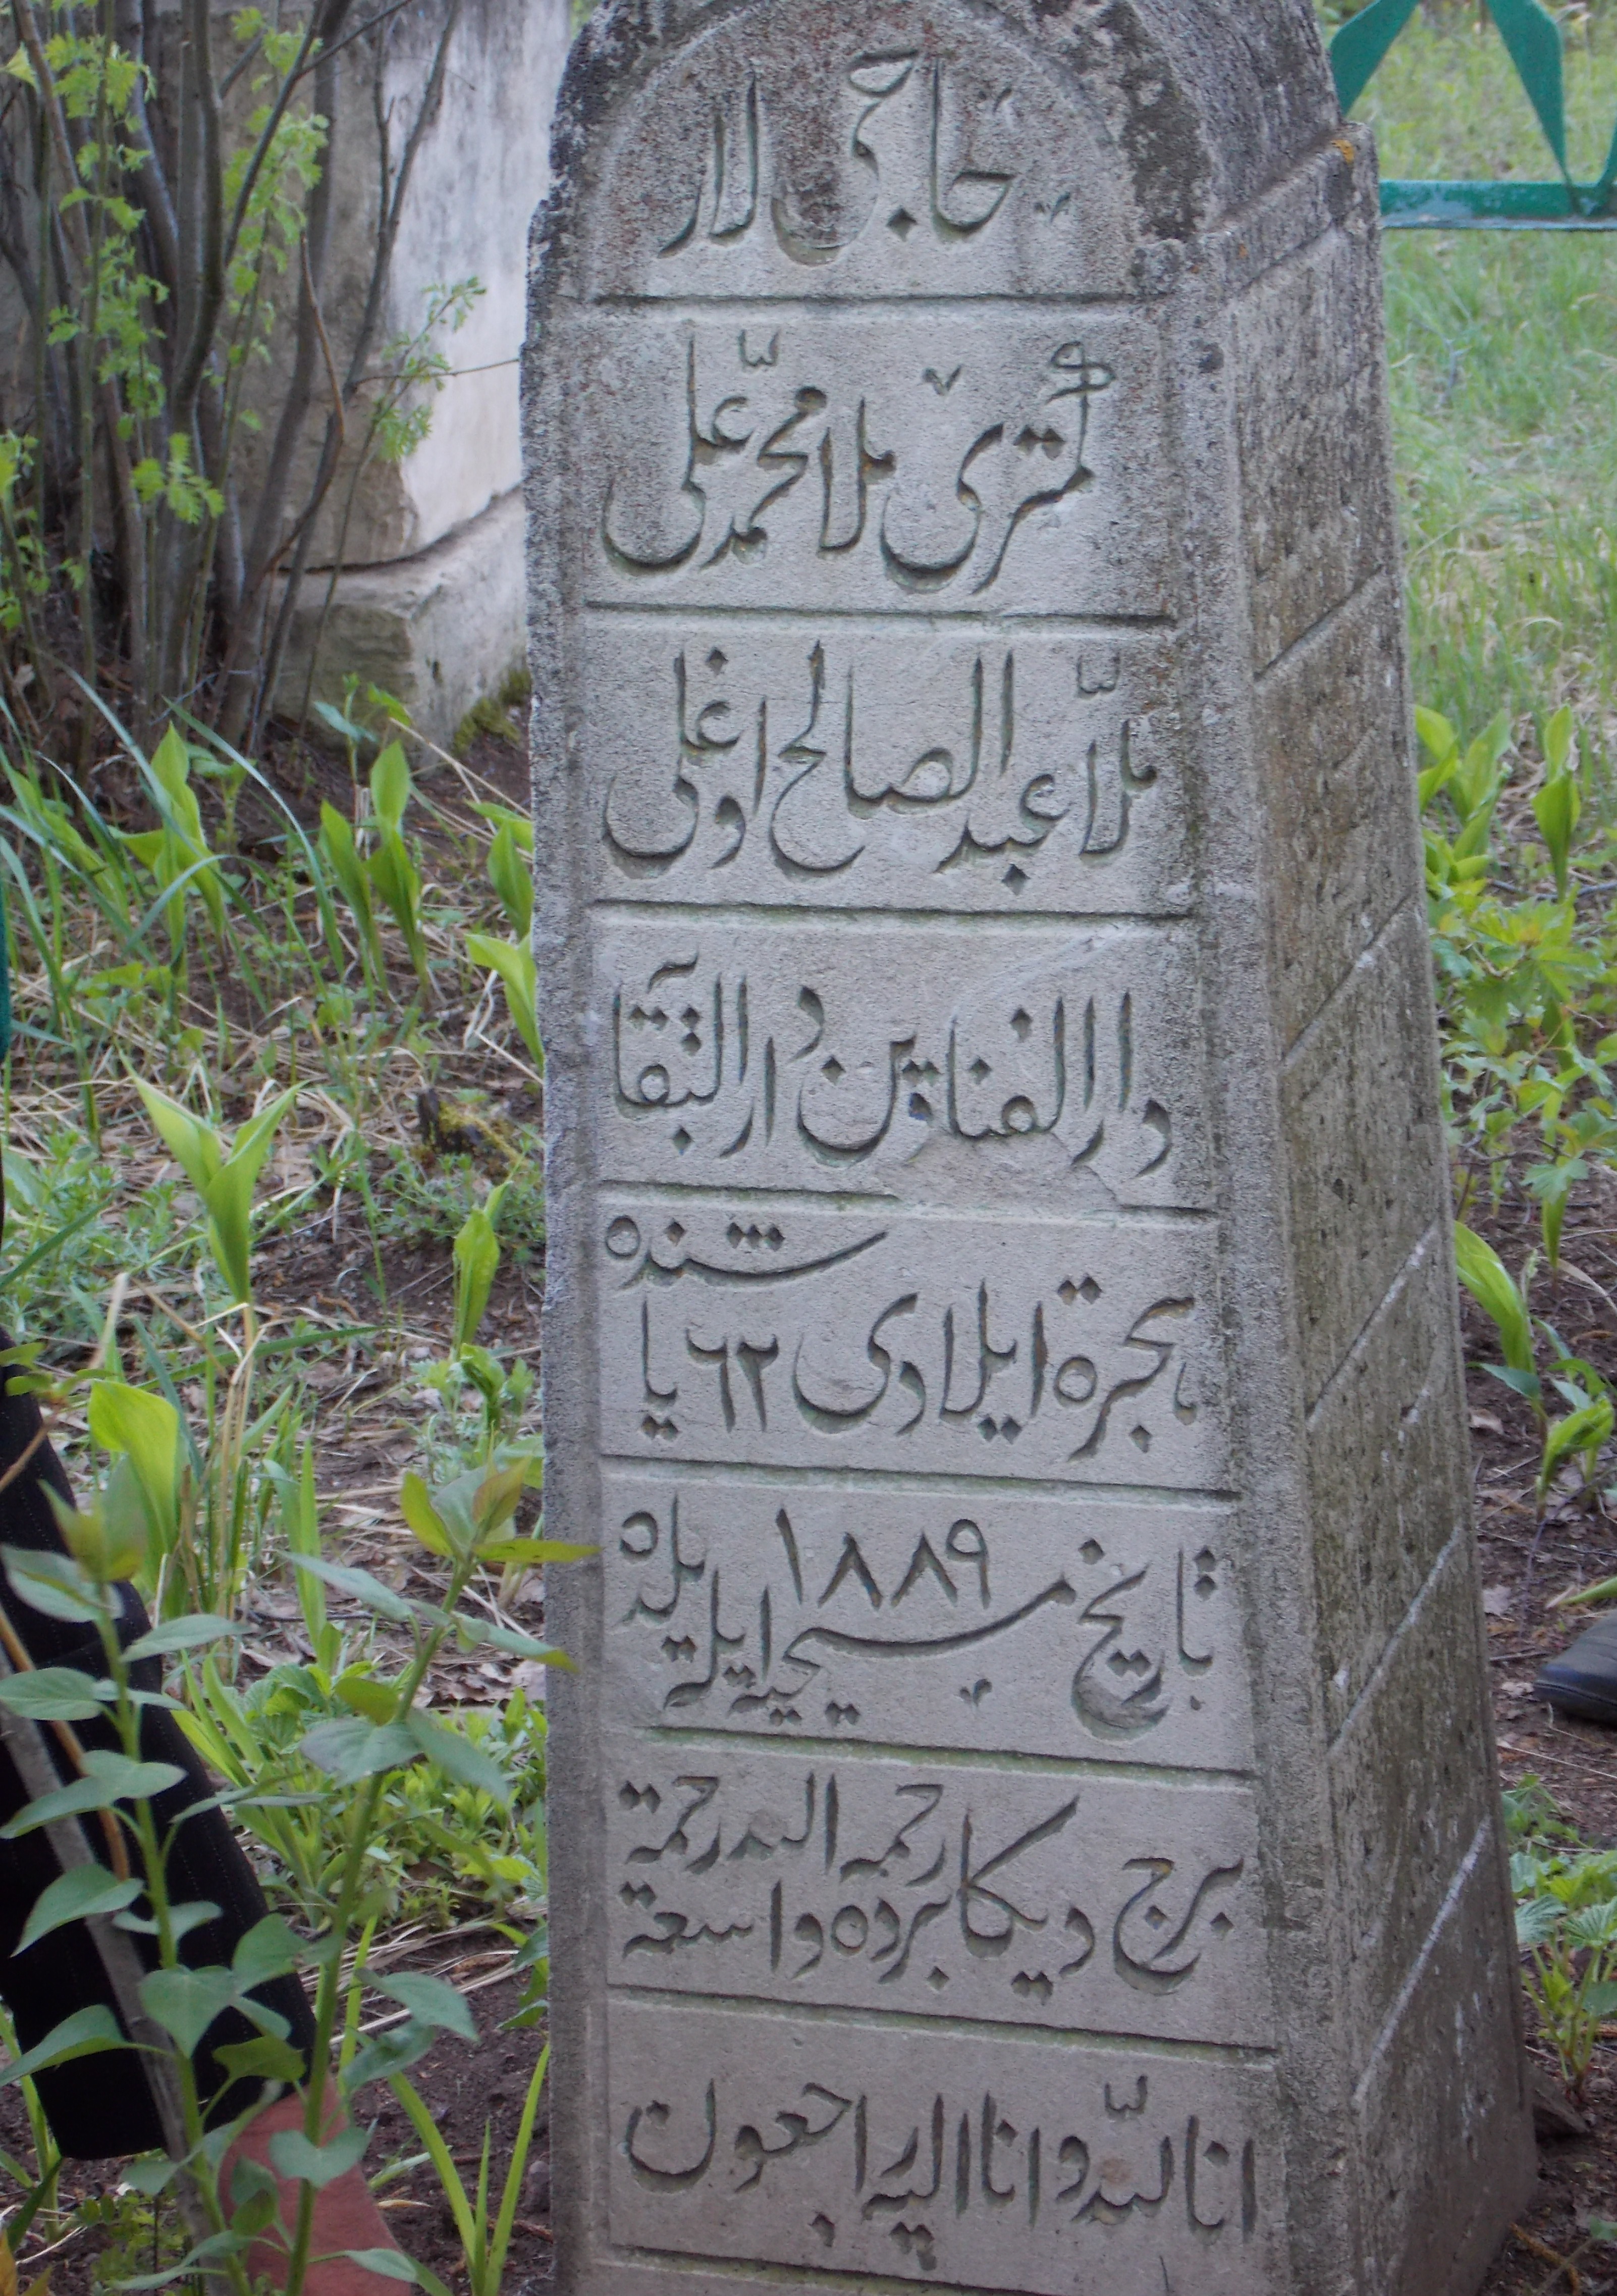 حاجی لار
ملا محمد علی
ملّا عبد الصالح اوغلی
دار الفنادین دار البقآ
هجرة ایلادی ٦٢ یاشنده
تاریخ مسیحیه ایله ١٨٨٩ یلده
برج دیکابرده رحمه الله رحمة واسعة
انا لله وانا الیه راجعون